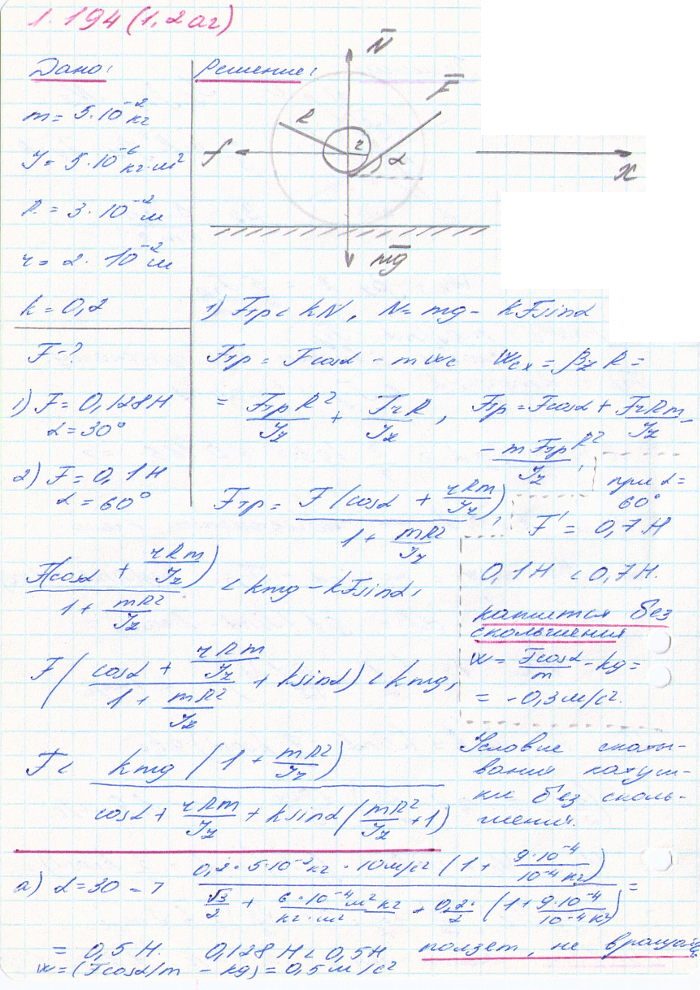 1.194 (1.2аг)
Дано:
m = 5·10⁻² кг
J = 5·10⁻⁶ кг·м²
R = 3·10⁻² м
r = 2·10⁻² м
k = 0,2
F - ?
1) F = 0,128 Н
α = 30°
2) F = 0,1 Н
α = 60°
Решение:
N̅
F̅
R
r
α
f
x
m̅g̅
1) Fтр < kN, N = mg - kFsinα
Fтр = Fcosα - mwc wcx = βz R =
= FтрR²/Jz + FrR/Jz, Fтр = Fcosα + FrRm/Jz -
- mFтрR²/Jz,
Fтр = F(cosα + rRm/Jz)/(1 + mR²/Jz),
при α = 60°
F' = 0,7 Н
0,1 Н < 0,7 Н.
катится без
скольжения
w = Fcosα/m - kg =
= -0,3 м/с².
F(cosα + rRm/Jz)/(1 + mR²/Jz) < kmg - kFsinα,
F((cosα + rRm/Jz)/(1 + mR²/Jz) + ksinα) < kmg,
F < kmg(1 + mR²/Jz)/(cosα + rRm/Jz + ksinα(mR²/Jz + 1))
Условие скаты-
вания катуш-
ки без сколь-
жения.
а) α = 30 - ? 0,2·5·10⁻²кг·10м/с²(1 + 9·10⁻⁴/10⁻⁴кг)/(√3/2 + 6·10⁻⁴м²кг/кг·м² + 0,2/2(1 + 9·10⁻⁴/10⁻⁴кг)) =
= 0,5 Н. 0,128 Н < 0,5 Н ползет, не вращаясь
w = (Fcosα/m - kg) = 0,5 м/с²